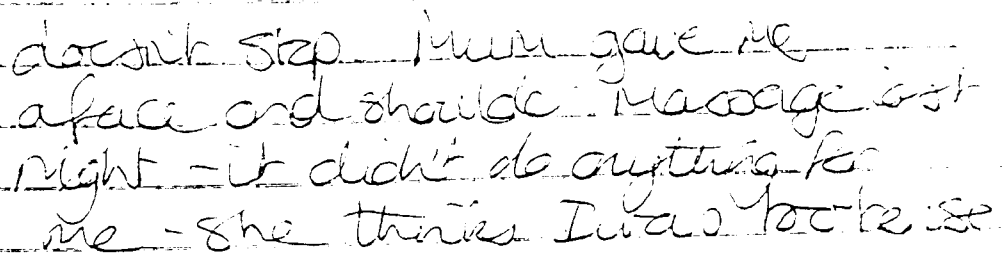 doesn't stop. Mum gave me
a face and shoulder massage last
night - it didn't do anything for
me - she thinks I was too tense